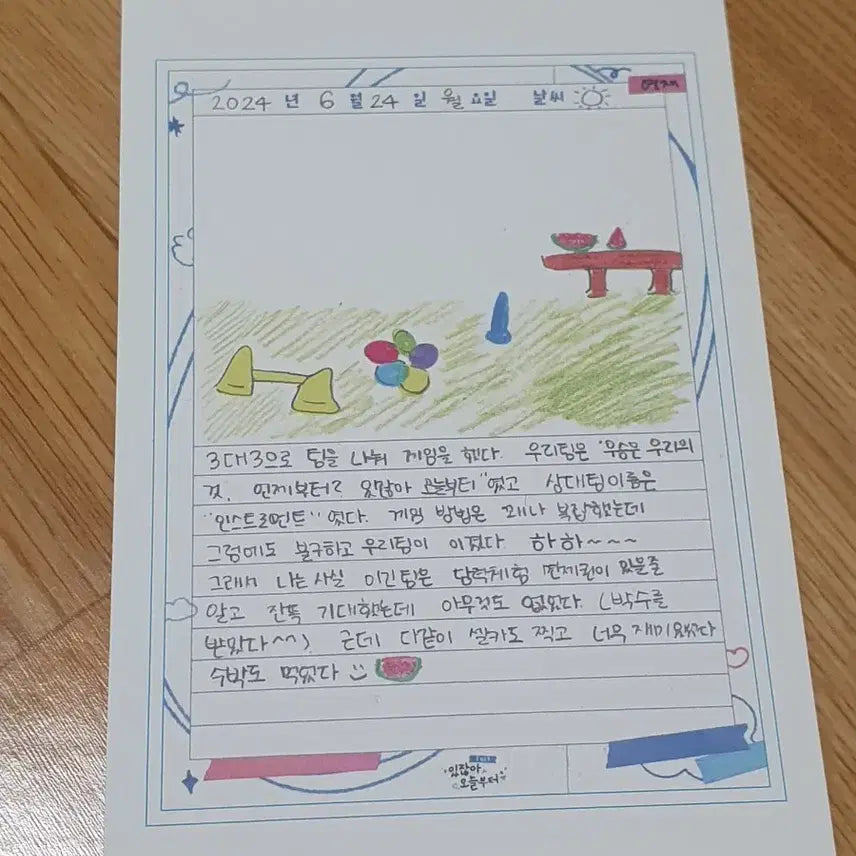 명재
2024 년 6 월 24 일 월요일 날씨
3대3으로 팀을 나눠 게임을 했다. 우리팀은 '우승은 우리의
것, 언제부터? 있잖아 오늘부터" 였고 상대팀이름은
"인스트로먼트" 였다. 게임 방법은 꽤나 복잡했는데
그럼에도 불구하고 우리팀이 이겼다. 하하~~~~
그래서 나는 사실 이긴팀은 담력체험 면제권이 있을줄
알고 잔뜩 기대했는데 아무것도 없었다. (박수를
받았다^^). 근데 다같이 셀카도 찍고 너무 재미있었다
수박도 먹었다
있잖아
오늘부터